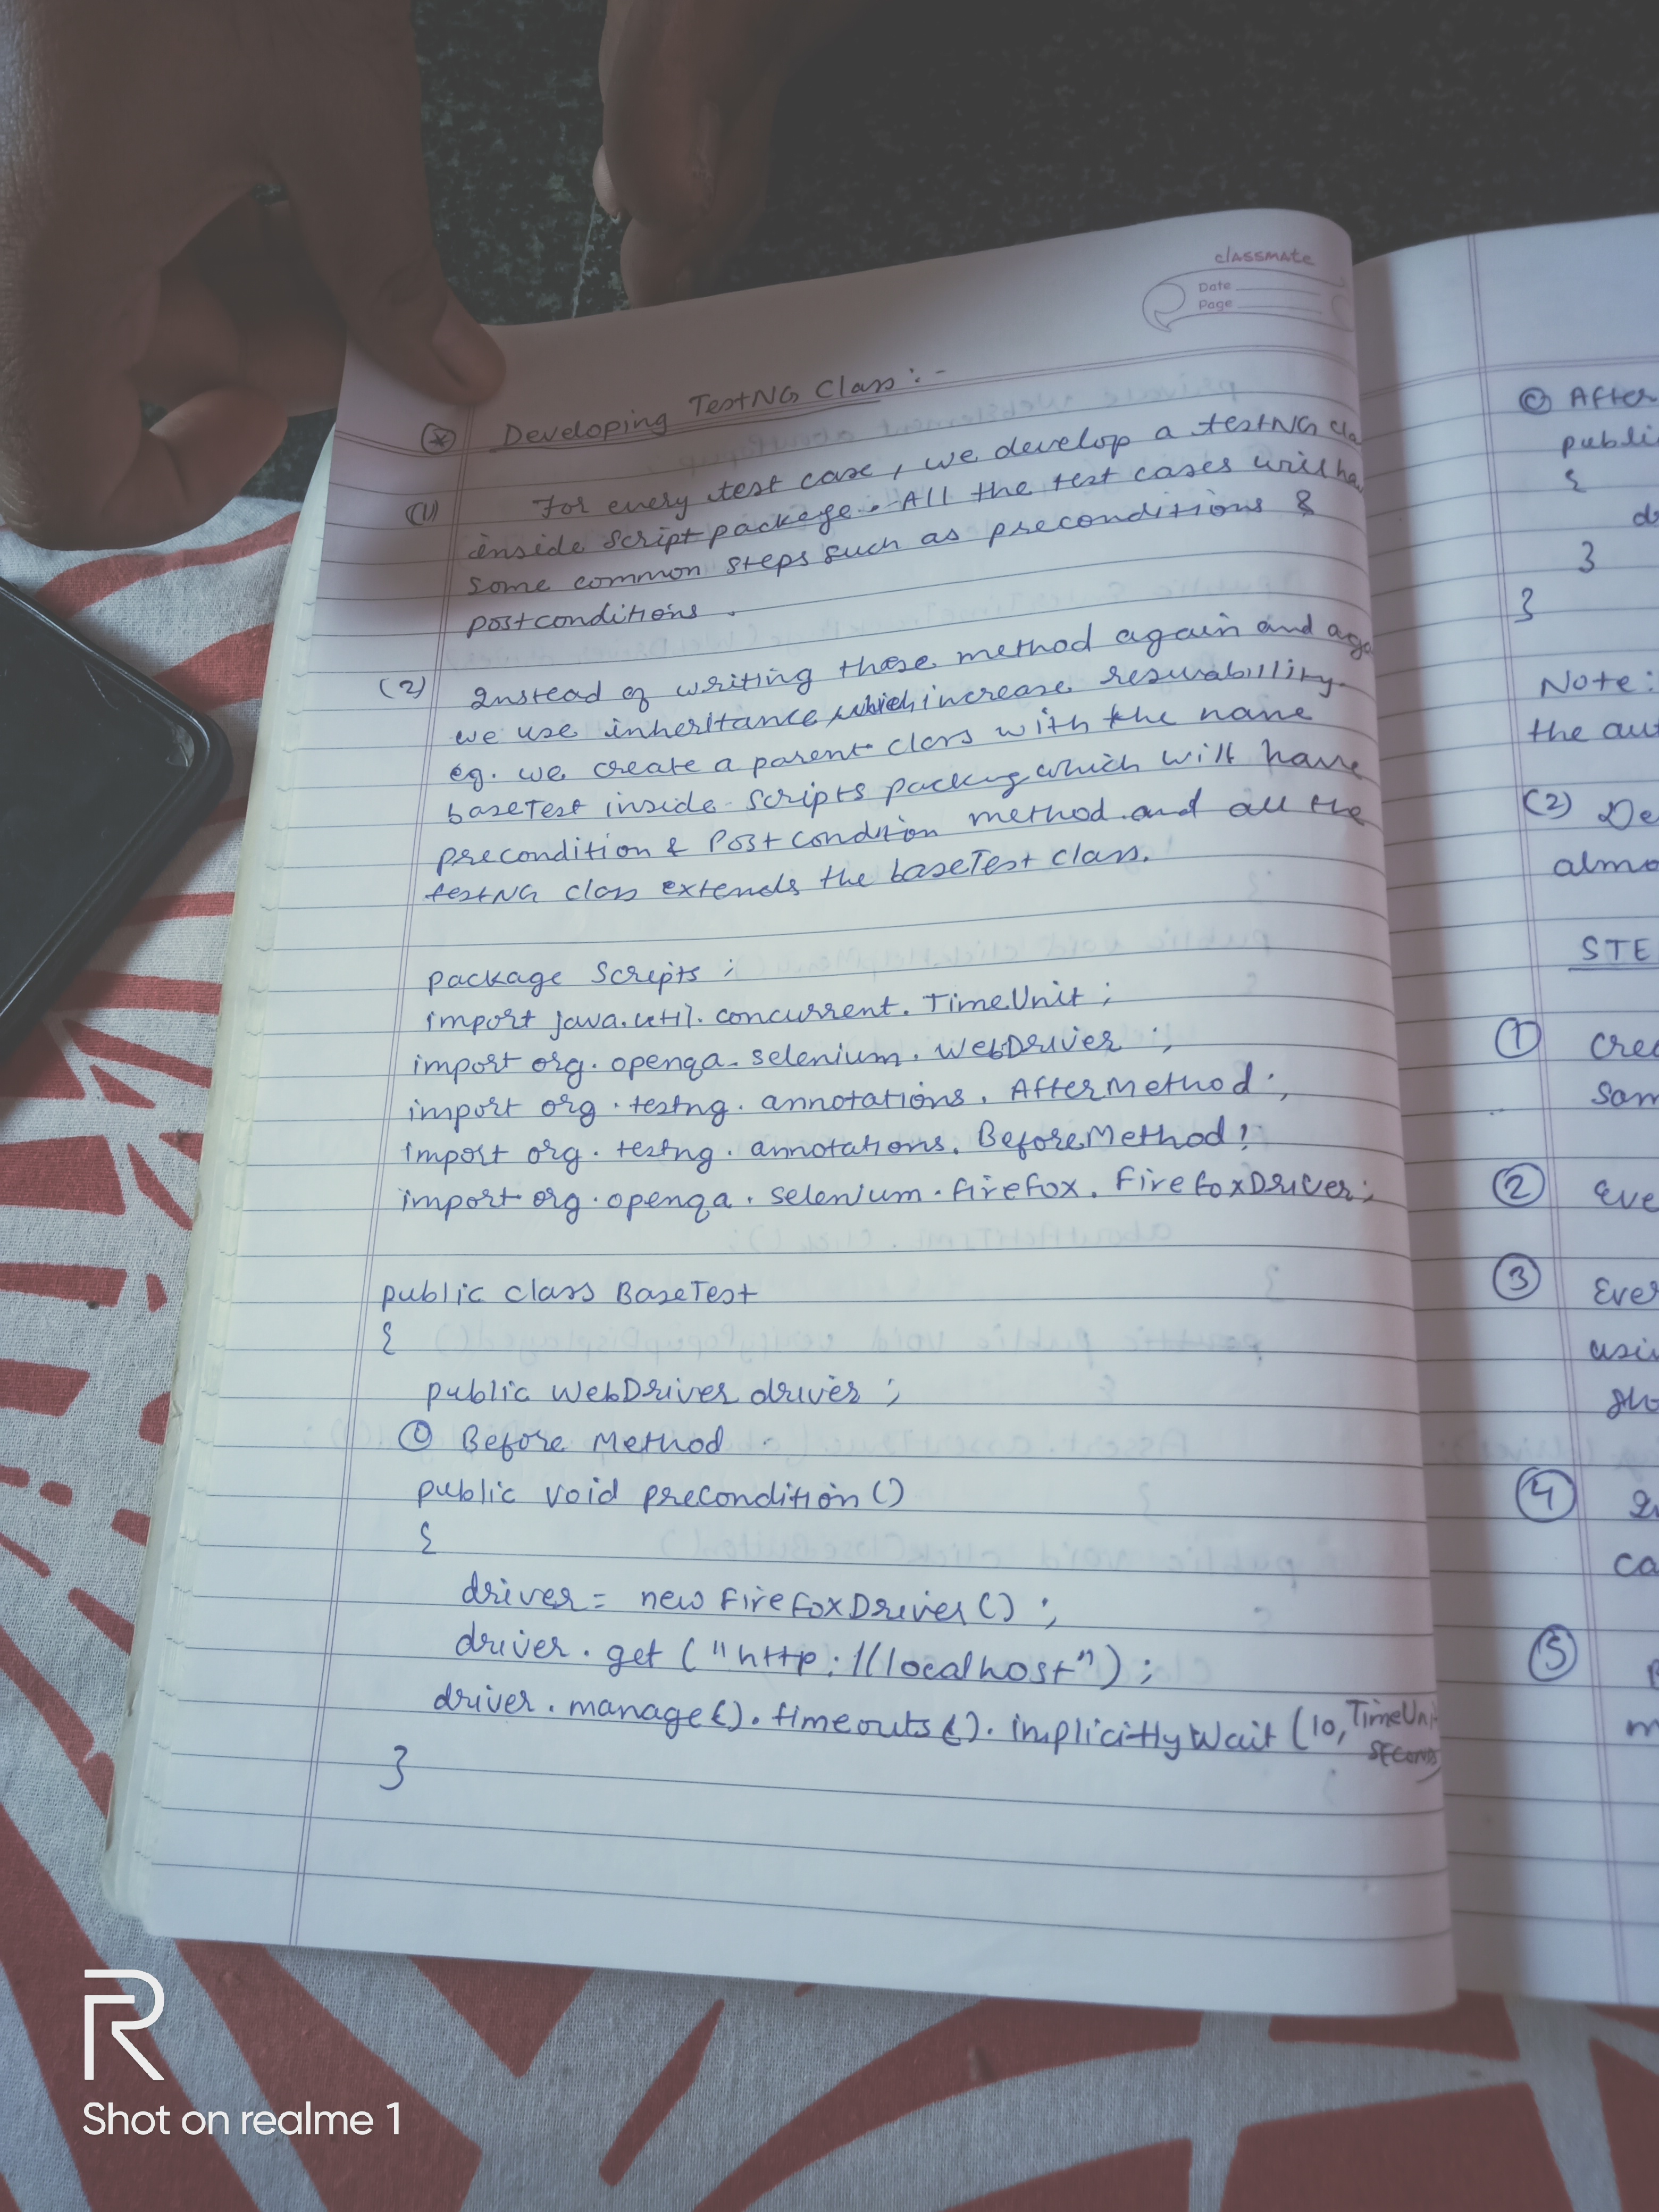 classmate
Date
Page
Developing TestNG Class :-
(1) For every test case, we develop a testNG cla
inside Script package. All the test cases will ha
some common steps such as preconditions &
postconditions.
(2) Instead of writing those method again and aga
we use inheritance which increase resuability.
eg. we create a parent class with the name
baseTest inside Scripts packing which will have
precondition & Post condition method and all the
testNG class extends the baseTest class.
package Scripts ;
import java.util.concurrent.TimeUnit ;
import org.openqa.selenium.WebDriver ;
import org.testng.annotations.AfterMethod ;
import org.testng.annotations.BeforeMethod ;
import org.openqa.selenium.firefox.FirefoxDriver ;
public class BaseTest
{
public WebDriver driver ;
@ Before Method
public void precondition ()
{
driver = new FirefoxDriver () ;
driver.get ("http://localhost") ;
driver.manage().timeouts().implicitlyWait (10, TimeUni
SECONDS
}
@ After
publi
{
d
}
}
Note :
the aut
(2) De
almo
STE
① Crea
Som
② Eve
③ Ever
usi
sho
④ In
ca
⑤
m
R
Shot on realme 1